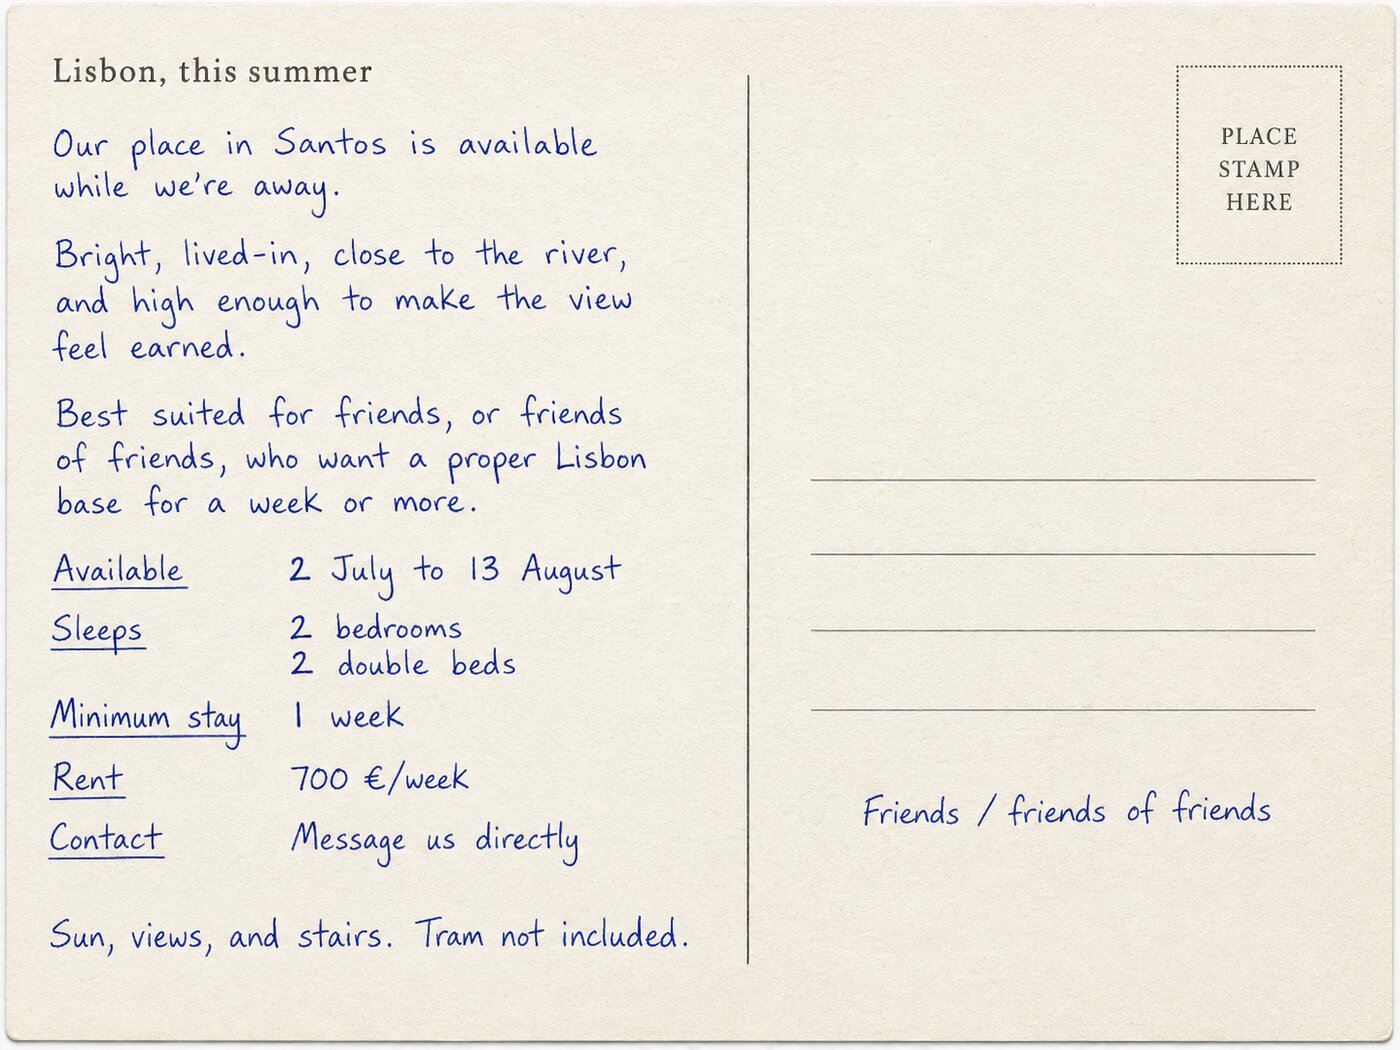 Lisbon, this summer
Our place in Santos is available
while we're away.
Bright, lived-in, close to the river,
and high enough to make the view
feel earned.
Best suited for friends, or friends
of friends, who want a proper Lisbon
base for a week or more.
Available 2 July to 13 August
Sleeps 2 bedrooms
2 double beds
Minimum stay 1 week
Rent 700 €/week
Contact Message us directly
Sun, views, and stairs. Tram not included.
PLACE
STAMP
HERE
Friends / friends of friends